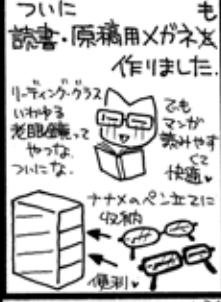 ついに も
読書・原稿用メガネを
作りました
リーディンググラス
いわゆる
老眼鏡って
やつな
ついにな.
でも
マンガ
読みやす
くて
快適♥
ナナメのペン立てに
収納
便利♥